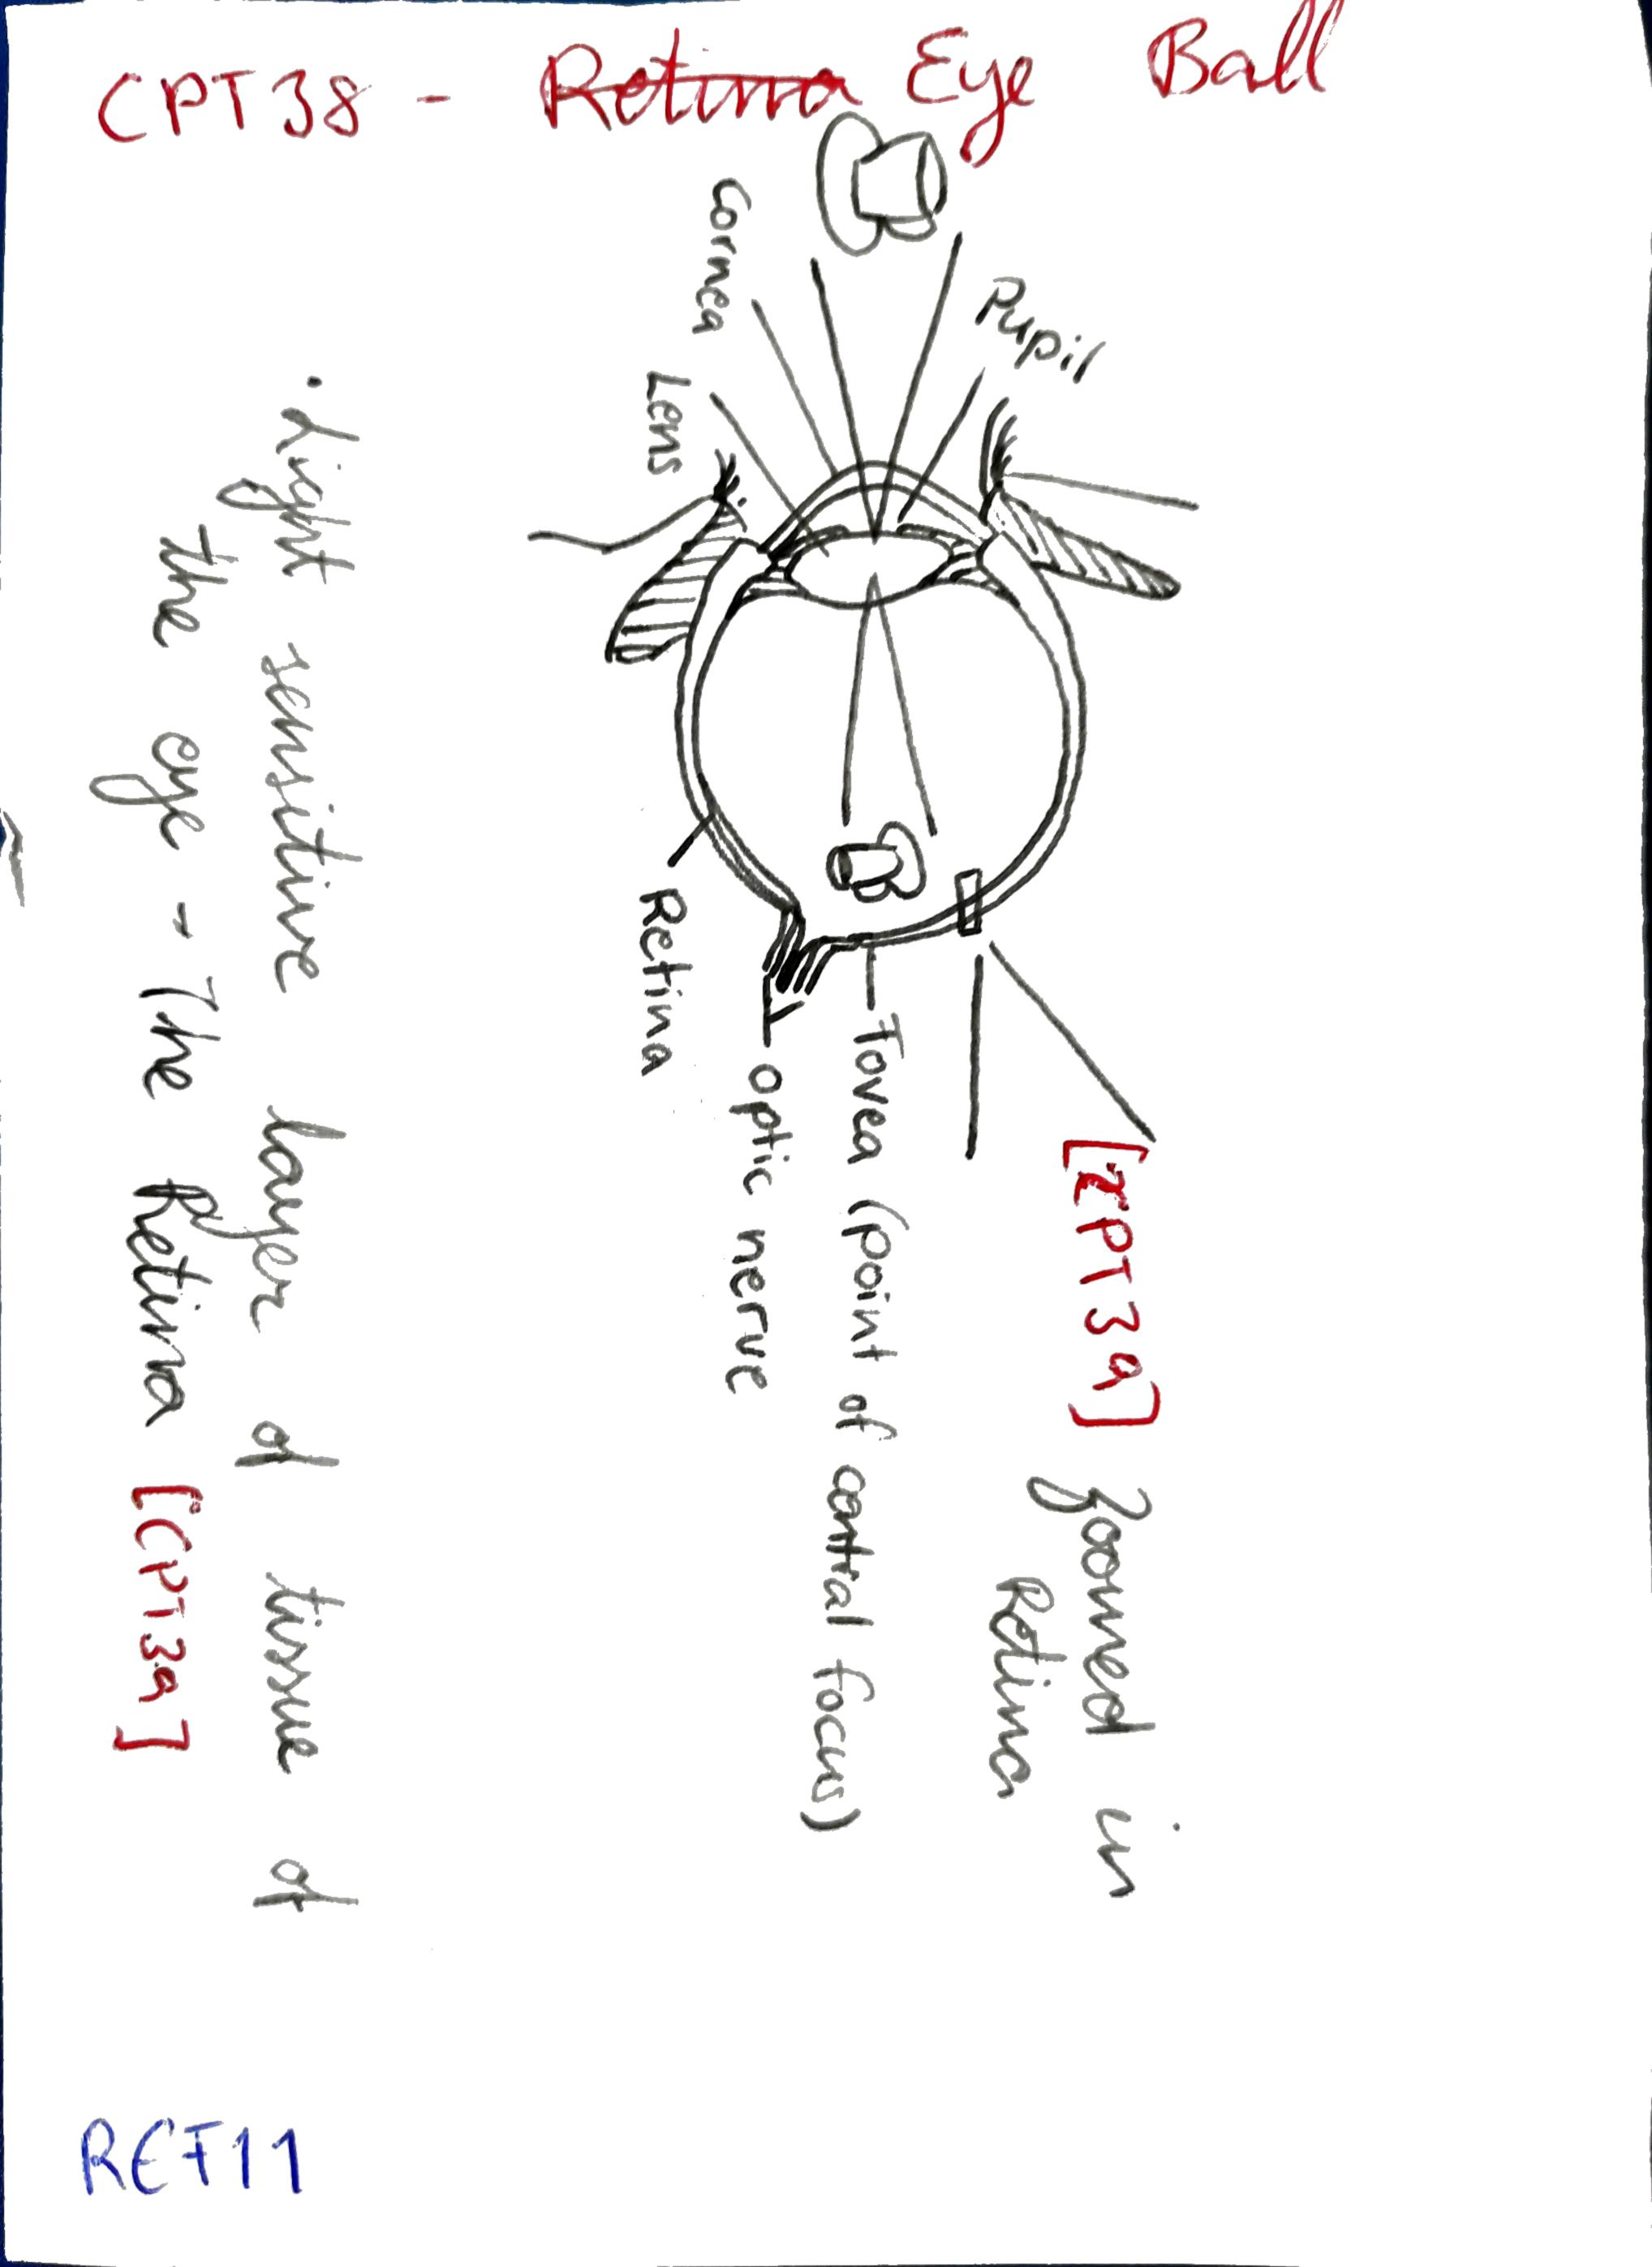 CPT38 - Retina Eye Ball
Pupil
Cornea
Lens
[CPT39] Zoomed in
Retina
Fovea (point of central focus)
optic nerve
Retina
. Light sensitive layer of tissue of
the eye - The Retina [CPT39]
REF11